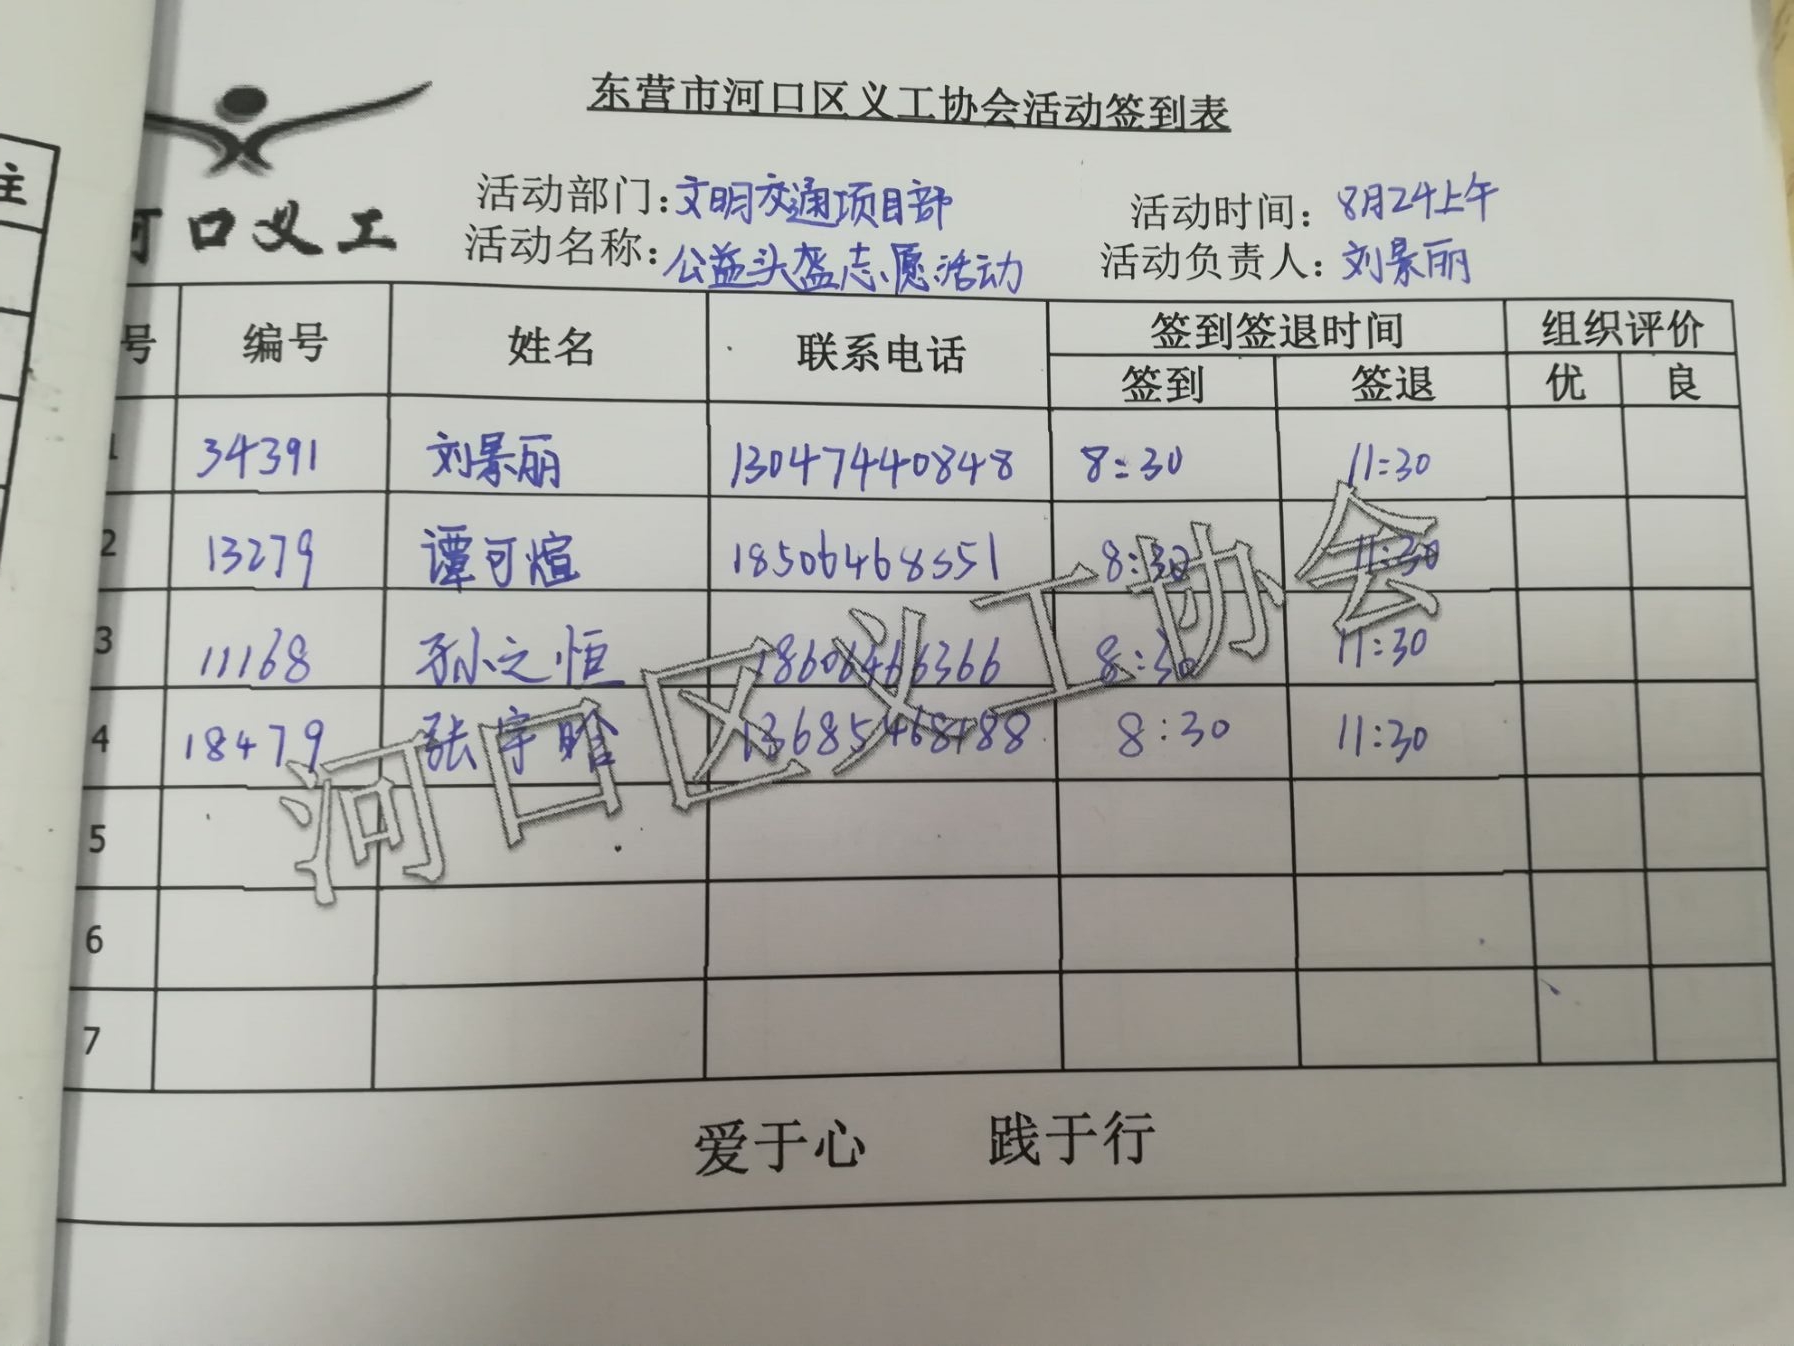 东营市河口区义工协会活动签到表
主
河口义工
活动部门:文明交通项目部 活动时间:8月24上午
活动名称:公益头盔志愿活动 活动负责人:刘景丽
号 编号 姓名 联系电话 签到签退时间 组织评价
签到 签退 优 良
1 34391 刘景丽 13047440848 8:30 11:30
2 13279 谭可煊 8:30 11:30
3 11168 孙之恒 18606466366 8:30 11:30
4 18479 张宇晗 13685468188 8:30 11:30
5
6
7
河口区义工协会
爱于心 践于行